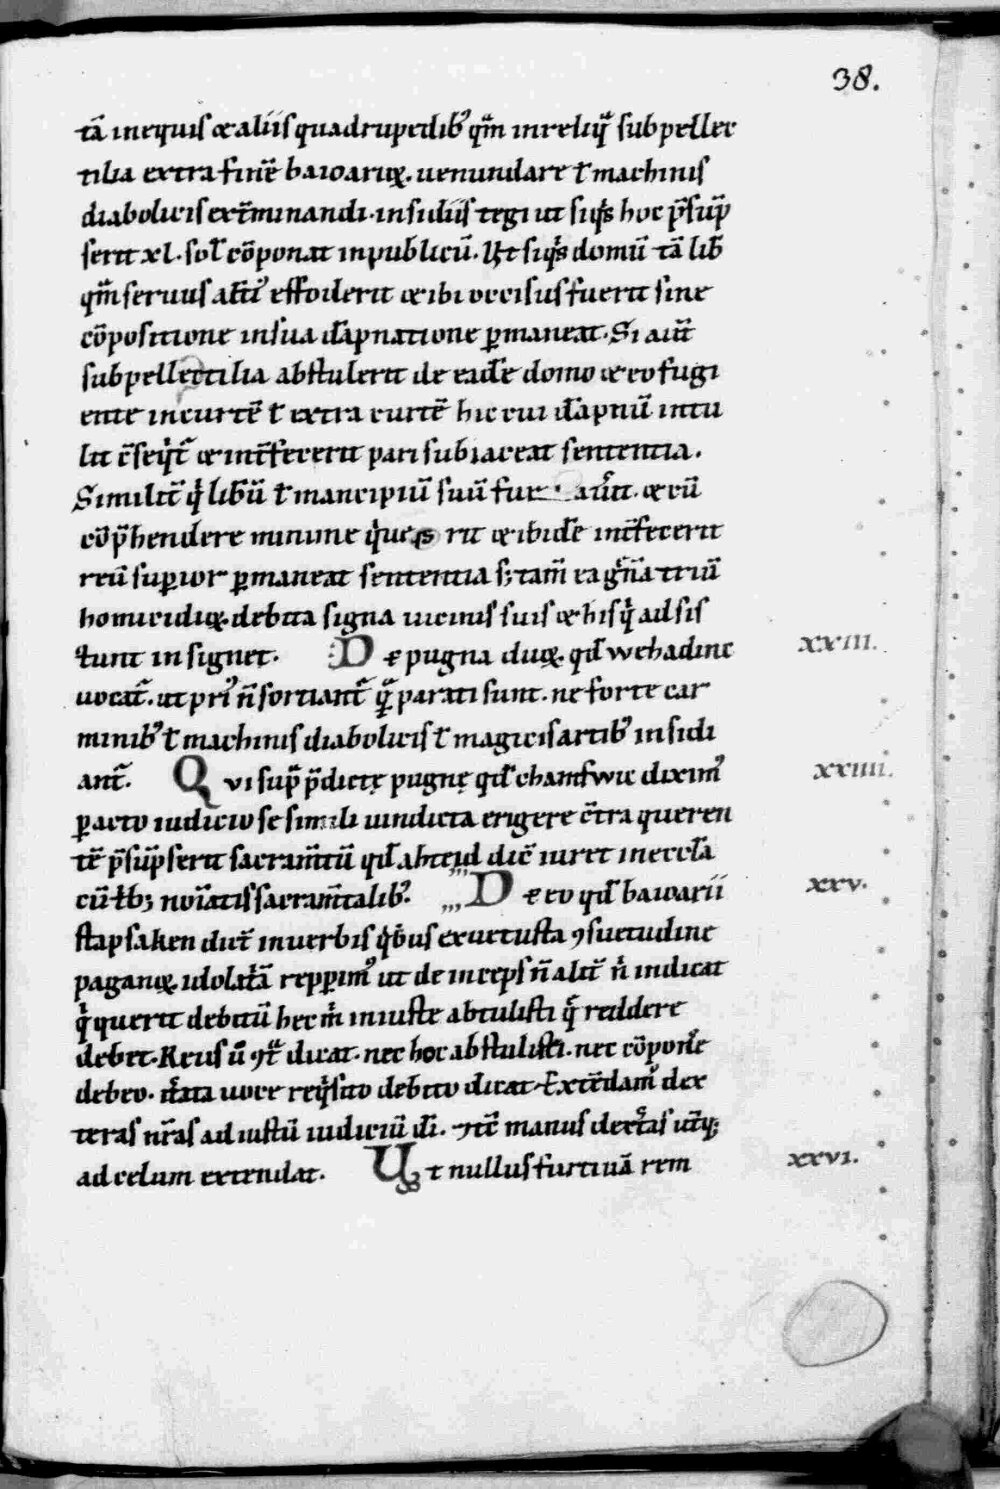 38.
tā inequis & aliis quadrupedib; qm̄ inreliq̄ subpellec
tilia extra finē baioarioꝝ. uenundare ł machinis
diabolicis ext̄minandi. insidiis tegi ut siqͥs hoc p̄sūp
serit xl. sol cōponat inpublicū. Vt siqͥs domū tā lib̄
qm̄ seruus alt̄iꝰ effoderit & ibi occisus fuerit sine
cōpositione insua dāpnatione ꝑmaneat. Si aut̄
subpellectilia abstulerit de eadē domo & eo fugi
ente incurtē ł extra curtē hic cui dāpnū intu
lit c̄seqͥt̄ & int̄fecerit pari subiaceat sententia.
Similit̄ qͥ libū ł mancipiū suū fur aūit. & cū
cōp̄hendere minime rit & ibidē int̄fecerit
reū suꝑior ꝑmaneat sententia s; tam̄ ea gn̄a triū
homicidioꝝ. debita signa uicinis suis & his qͥ adsis
tunt insignet. De pugna duoꝝ. qd̄ wehadinc xxiii.
uocat̄. ut priꝰ n̄ sortiant̄ q̄ parati sunt. ne forte car
minibꝰ ł machinis diabolicis ł magicis artibꝰ insidi
ant̄. Qui sup̄ p̄dictę pugnę qd̄ chamfwic diximꝰ xxiiii.
ꝑacto iudicio se simili uindicta erigere c̄tra queren
tē p̄sūpserit sacram̄tū qd̄ ahteid dic̄ iuret ineccl̄a
cū noīatis sacram̄talibꝰ. De eo qd̄ baioarii xxv.
stapsaken dict̄ inuerbis qͥbus exuetusta ꝯsuetudine
paganoꝝ. idolat̄ā reꝑimꝰ ut deinceps n̄ alit̄ nͥ indicat
qͥ querit debitū hec mͥ iniuste abtulisti q̄ reddere
debet. Reus ū ꝯt̄ dicat. nec hoc abstulisti. nec cōpon̄e
debeo. it̄ata uoce reqͥsito debito dicat Extēdamꝰ dex
teras nr̄as ad iustū iudiciū di. ⁊tc̄ manus dext̄as ut̄q;
ad celum extendat. Vt nullus furtiuā rem xxvi.